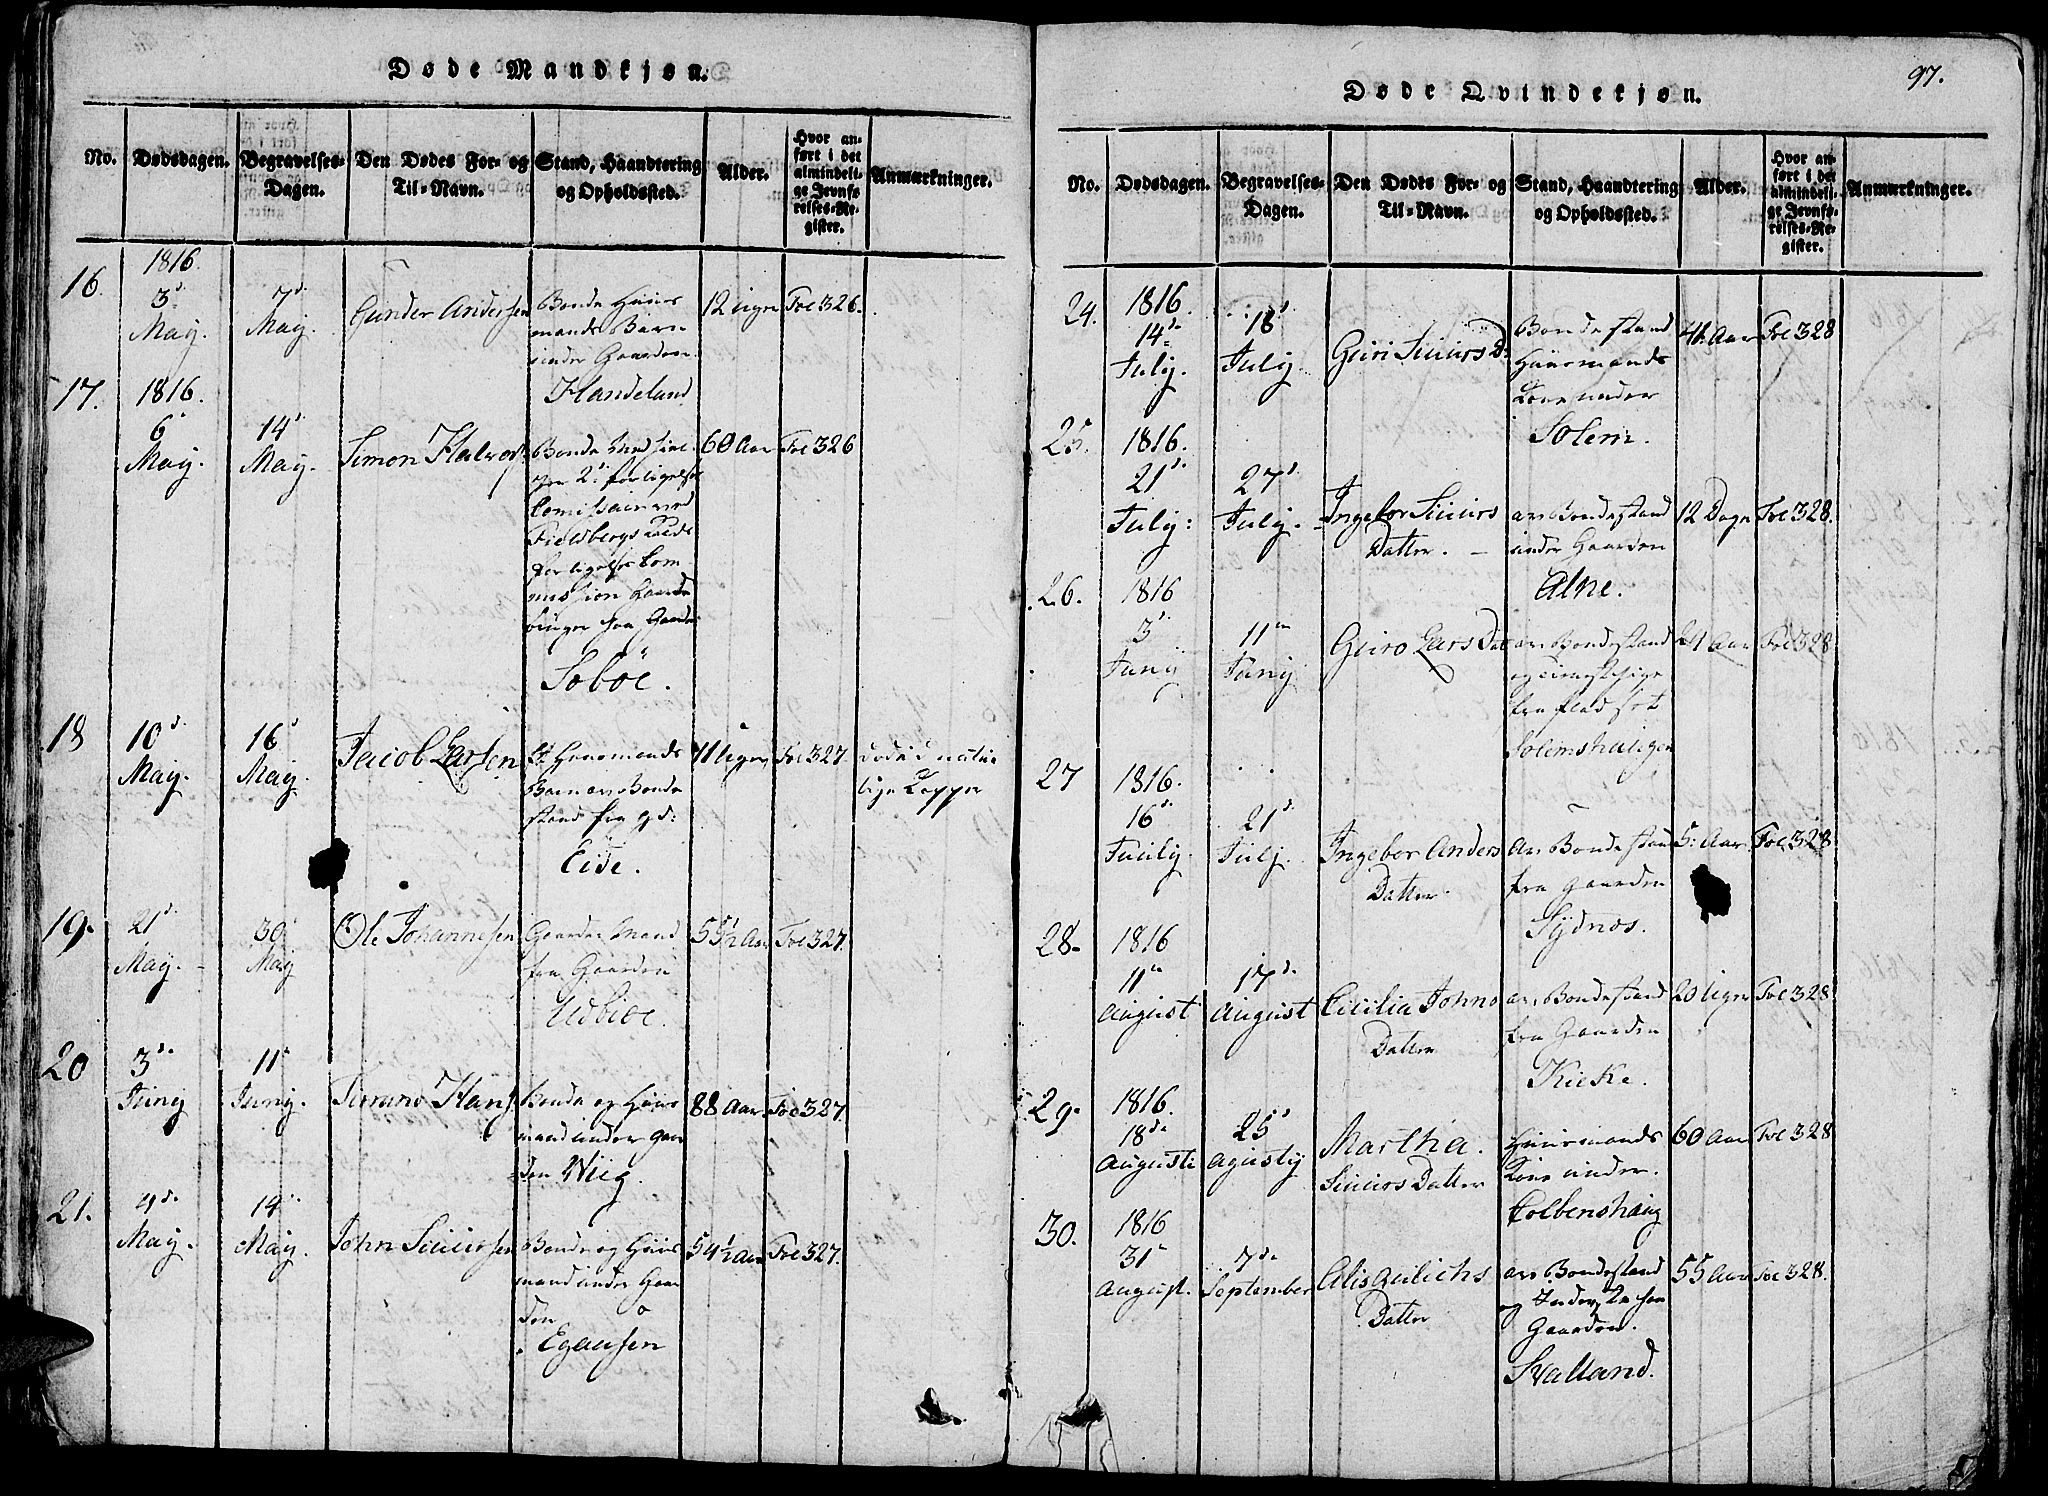 Døde Mandkjøn.
No. Dødsdagen. Begravelses-Dagen. Den Dødes For- og Til-Navn. Stand, Haandtering og Opholdssted. Alder. Hvor anført i det almindelige Jevnførelses-Register. Anmærkninger.
16. 1816. 3d. May. 7d. May. Gunder Andersen Bonde Huusmands Barn under Gaarden Handeland 12 uger Fol 326.
17. 1816. 6 May. 14d May. Simon Halvors. Bonde 60 Aar Fol 326
Soboe.
18 10d. May. 16d May. Jacob Larsen Huusmands Barn av Bondestand fra gd: Eide. 11 Uger, Fol 327. døde i naturlige Copper
19. 21d. May. 30 May Ole Johannesen Gaardmand fra Gaarden Udbioe. 55 1/2 Aar Fol 327.
20 3de Juny 11 Juny. Simund Hans. Bonde og Huusmand under Gaarden Wiig. 88 Aar Fol 327.
21. 4de May. 14 May. John Siursen Bonde og Huusmand under Gaarden Egaasen 54 1/2 Aar Fol 327.
97.
Døde Qvindekjøn.
No. Dødsdagen. Begravelses-Dagen. Den Dødes For- og Til-Navn. Stand, Haandtering og Opholdssted. Alder. Hvor anført i det almindelige Jevnførelses-Register. Anmærkninger.
24. 1816. 14de July. 18d July. Guri Siuurs D: Bondestand Huusmands Kone under Solem. 41 Aar Fol 328
25. 1816. 21d. July: 27d. July. Ingebor Siuurs Datter. av Bondestand under Gaarden Alne. 12 Dage Fol 328.
26. 1816 3d. Juny 11te Juny Guro Lars Dat av Bondestand fra Pladset Solemshaugen 24 Aar Fol 328
27 1816. 16de July. 21d. July. Ingebor Anders Datter. av Bondestand fra Gaarden Sydnes. 5: Aar Fol 328.
28. 1816 11te August 17de August Cicilia Johns Datter av Bondestand fra Gaarden Kieke. 20 Uger Fol 328
29. 1816. 18de Augusti 25d Agusty Martha. Siuurs Datter Huusmands Kone under. Colbenshaug 60 Aar Fol 328
30. 1816 31te August. 7de September Datter av Bondestand og Inderste paa Gaarden. Svalland. 55 Aar Fol 328.